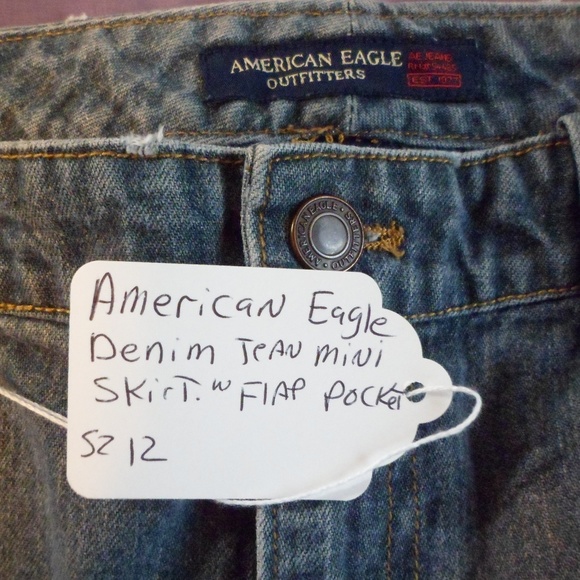 AMERICAN EAGLE
OUTFITTERS
AE JEANS
EST 1977
AMERICAN EAGLE • OUTFITTERS
AMERICAN EAGLE
DENIM JEAN MINI
SKIRT. W FLAP POCKET
SZ 12